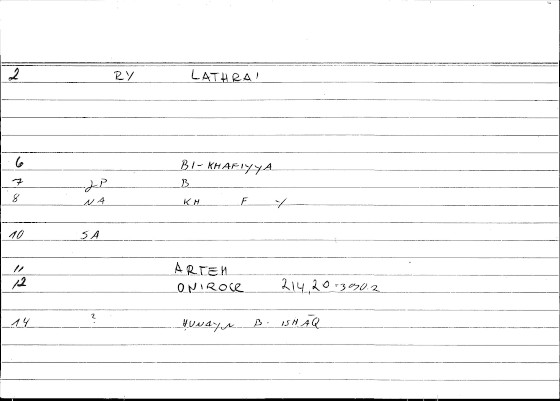 2 RY LATHRAI
6 BI-KHAFIYYA
7 JP B
8 NA KH F Y
10 SA
11 ARTEM
12 ONIROCR 214,20
14 ? ḤUNAYN B. ISḤĀQ